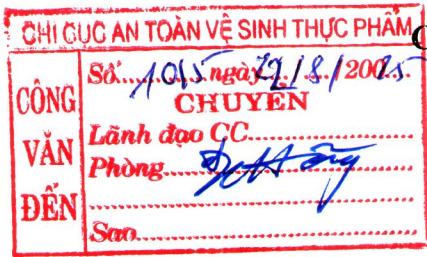 CHI CỤC AN TOÀN VỆ SINH THỰC PHẨM
CÔNG VĂN ĐẾN
Số: 1015 ngày 29/8/2025
CHUYỂN
Lãnh đạo CC
Phòng
Sao